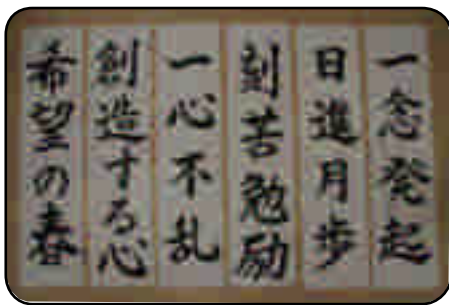 一念発起
日進月歩
刻苦勉励
一心不乱
創造する心
希望の春